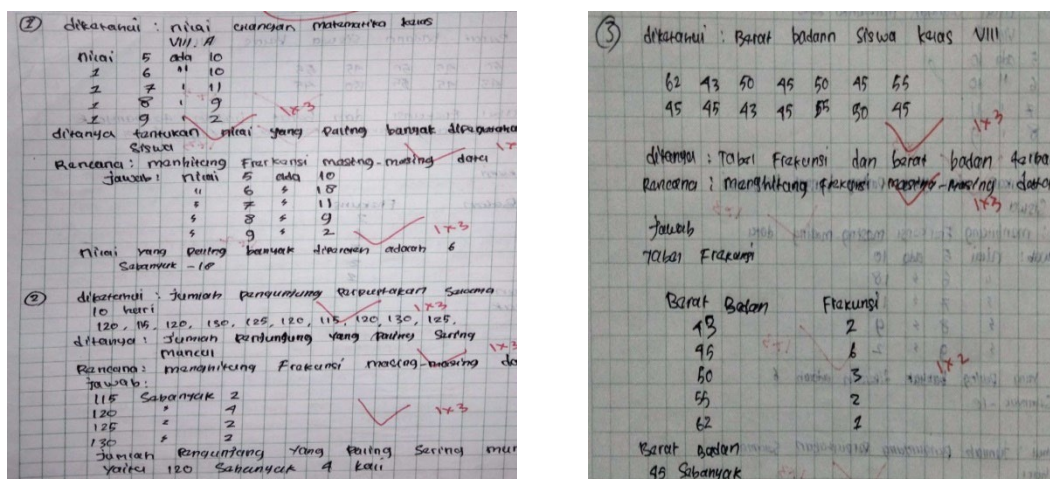 ①
diketahui : nilai ulangan matematika kelas
VIII. A
nilai 5 ada 10
1 6 " 10
1 7 " 11
1 8 " 9
1 9 " 2
1x3
ditanya tentukan nilai yang paling banyak
siswa
Rencana : menhitung Frekuensi masing-masing data
jawab : nilai 5 ada 10
" 6 " 18
" 7 " 11
" 8 " 9
" 9 " 2
1x3
nilai yang paling banyak adalah 6
Sebanyak - 18
②
diketahui : jumlah pengunjung perpustakaan Selama
10 hari
1x3
120, 115, 120, 130, 125, 120, 115, 120, 130, 125,
ditanya : Jumlah pengunjung yang paling Sering
muncul
1x3
Rencana : menghitung Frekuensi masing-masing da
jawab :
115 Sebanyak 2
120 " 4
125 " 2
130 " 2
1x3
Jumlah Pengunjung yang paling Sering mun
yaitu 120 Sebanyak 4 kali
③
diketahui : Berat badann Siswa kelas VIII
62 43 50 45 50 45 55
45 45 43 45 55 50 45
1x3
ditanya : Tabel Frekunsi dan berat badan terba
Rencana : menghitung frekunsi masing-masing data
1x3
Jawab
Tabel Frekunsi
Berat Badan Frekunsi
43 2
45 6
50 3
1x2
55 2
62 1
Berat Badan
45 Sebanyak